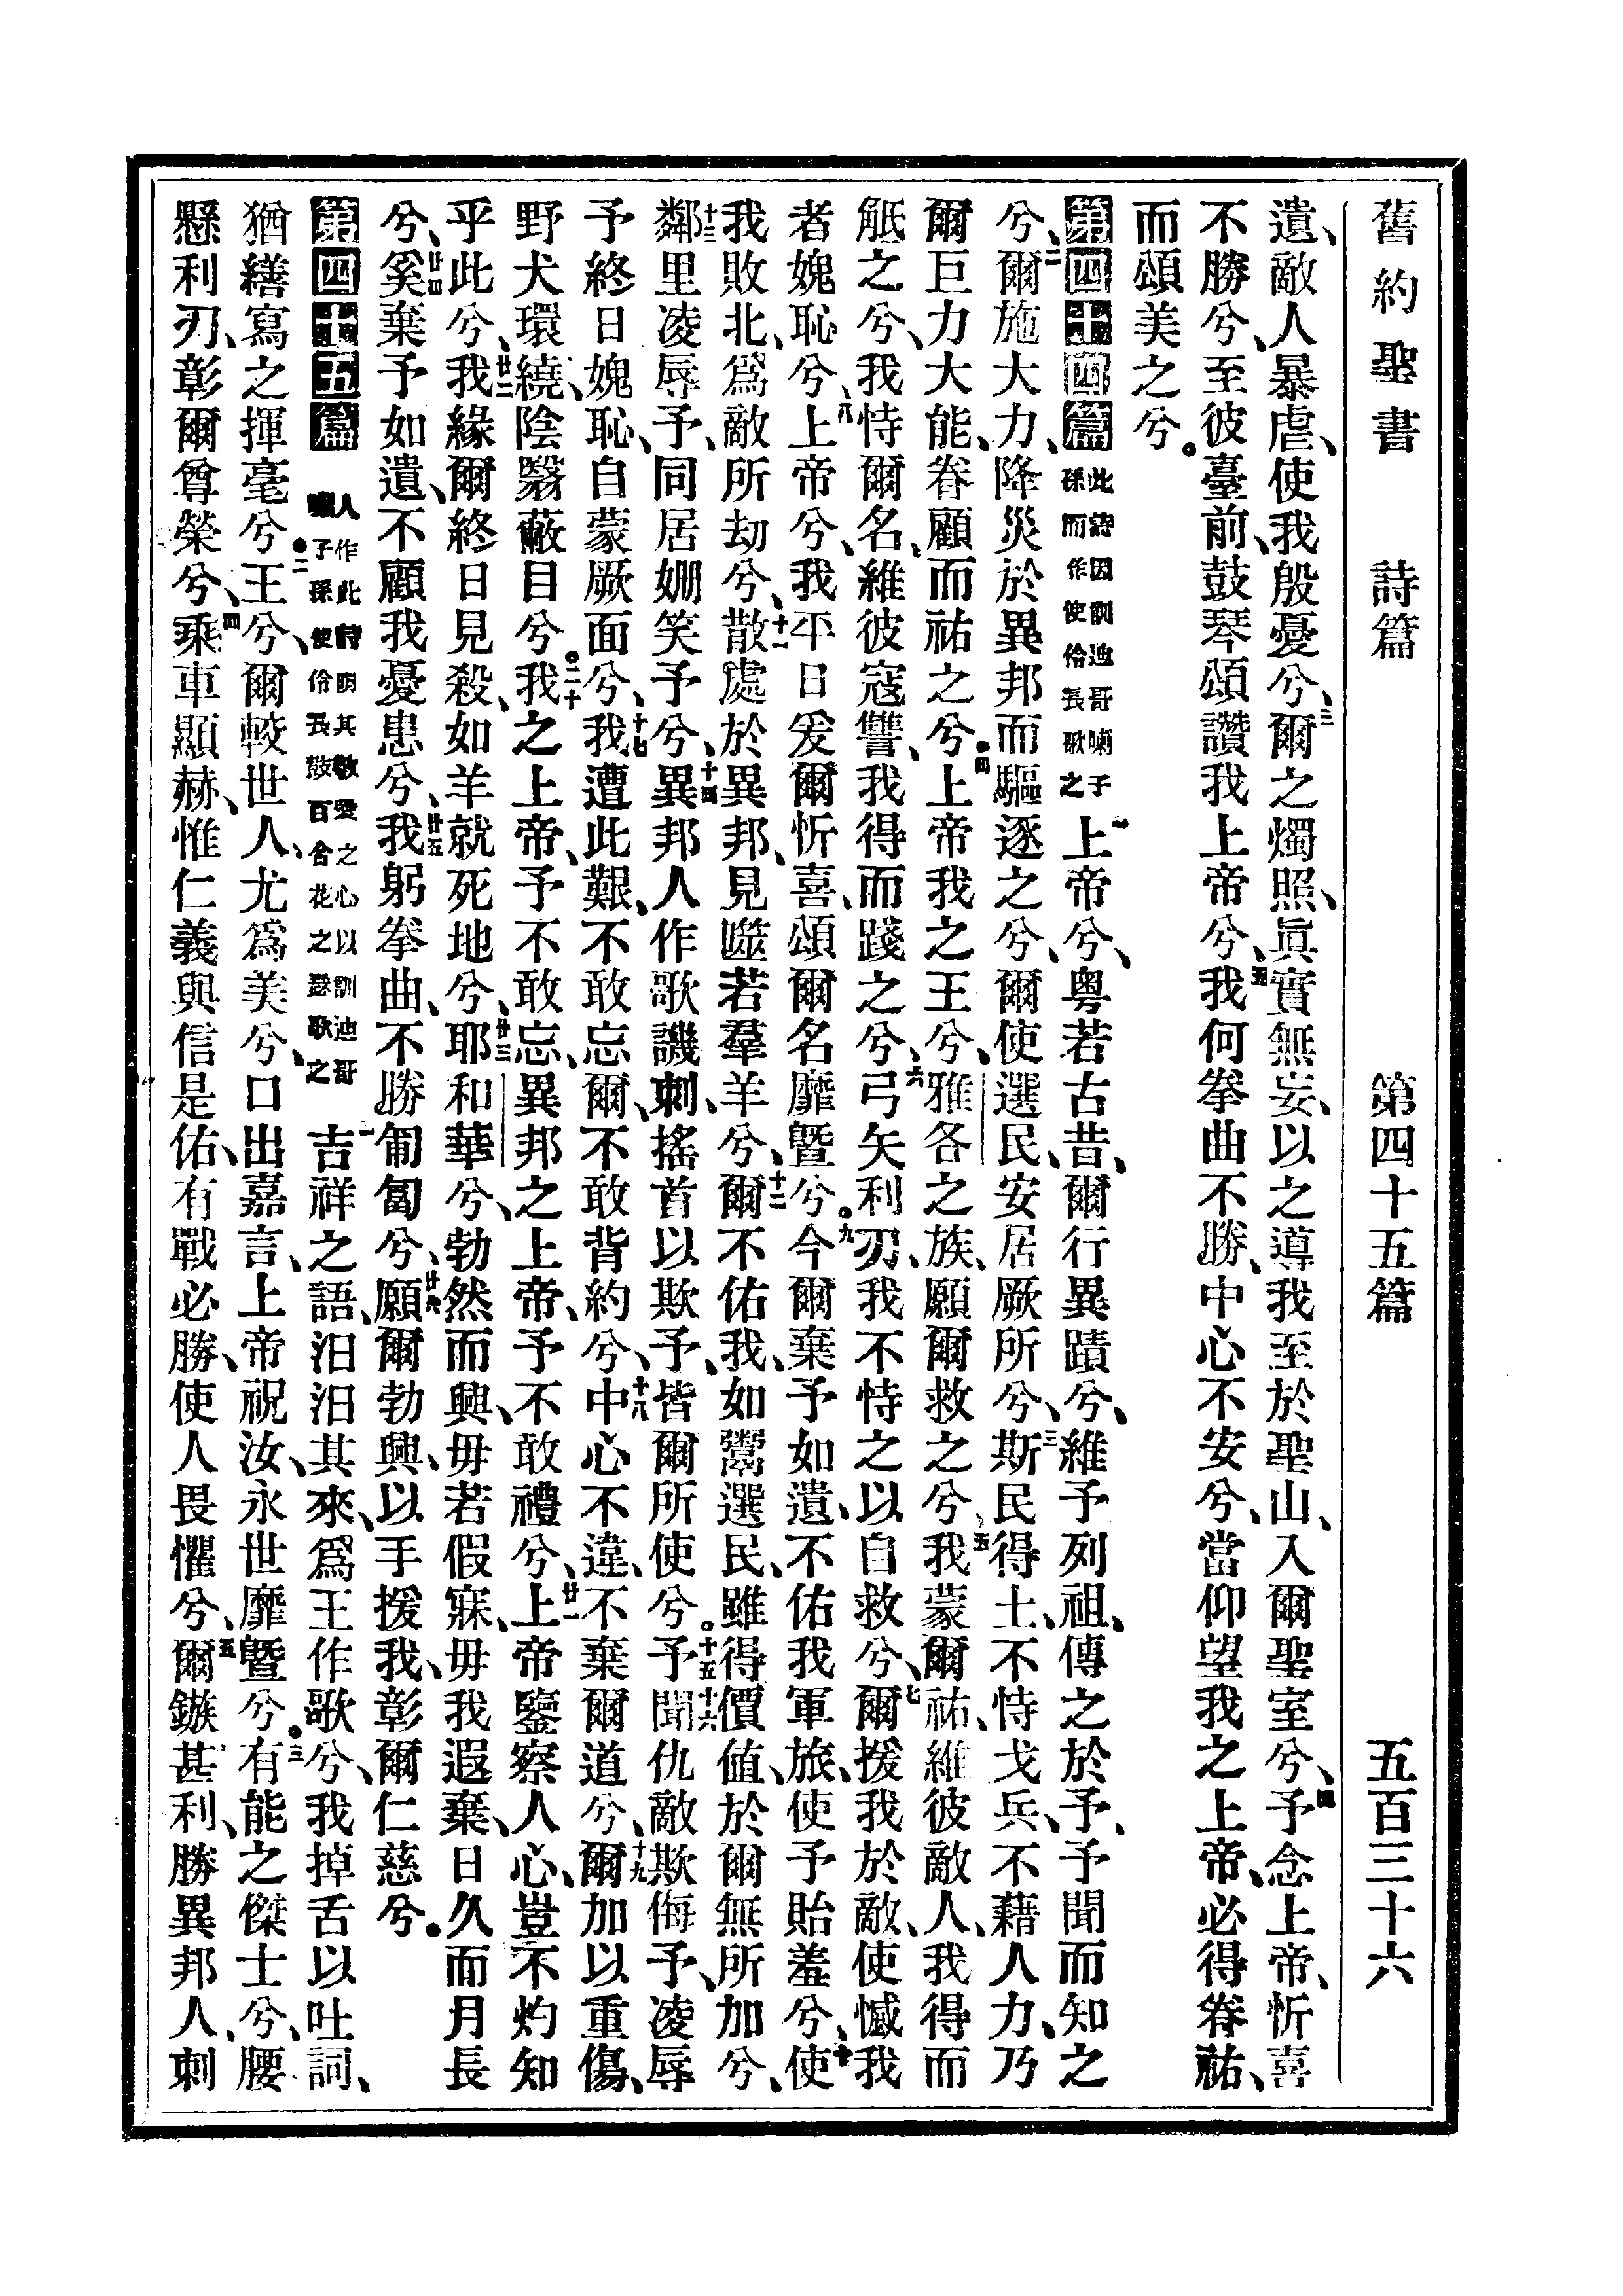 舊約聖書　詩篇　第四十五篇　五百三十六
遺、敵人暴虐、使我殷憂兮、三爾之燭照、眞實無妄、以之導我至於聖山、入爾聖室兮、四予念上帝、忻喜
不勝兮、至彼臺前、鼓琴頌讚我上帝兮、五我何拳曲不勝、中心不安兮、當仰望我之上帝、必得眷祐、
而頌美之兮。
第四十四篇　此詩因訓迪哥喇子孫而作使伶長歌之　一上帝兮、粤若古昔、爾行異蹟兮、維予列祖、傳之於予、予聞而知之
兮、二爾施大力、降災於異邦而驅逐之兮、爾使選民、安居厥所兮、三斯民得土、不恃戈兵、不藉人力、乃
爾巨力大能、眷顧而祐之兮。四上帝我之王兮、雅各之族、願爾救之兮、五我蒙爾祐、維彼敵人、我得而
觝之兮、我恃爾名、維彼寇讐、我得而踐之兮、六弓矢利刃、我不恃之以自救兮、七爾援我於敵、使憾我
者媿恥兮、八上帝兮、我平日爰爾忻喜、頌爾名靡曁兮。九今爾棄予如遺、不佑我軍旅、使予貽羞兮、十使
我敗北、爲敵所劫兮、十一散處於異邦、見噬若羣羊兮、十二爾不佑我、如鬻選民、雖得價値、於爾無所加兮、
十三鄰里凌辱予、同居姍笑予兮、十四異邦人作歌譏刺、搖首以欺予、皆爾所使兮。十五予聞仇敵欺侮予、十六凌辱
予終日媿恥、自蒙厥面兮、十七我遭此艱、不敢忘爾、不敢背約兮、十八中心不違、不棄爾道兮、十九爾加以重傷、
野犬環繞、陰翳蔽目兮。二十我之上帝、予不敢忘、異邦之上帝、予不敢禮兮、廿一上帝鑒察人心、豈不灼知
乎此兮、廿二我緣爾終日見殺、如羊就死地兮、廿三耶和華兮、勃然而興、毋若假寐、毋我遐棄、日久而月長
兮、廿四奚棄予如遺、不顧我憂患兮、廿五我躬拳曲、不勝匍匐兮、廿六願爾勃興、以手援我、彰爾仁慈兮。
第四十五篇　人作此詩明其敬愛之心以訓迪哥喇子孫使伶長鼓百合花之瑟歌之　一吉祥之語、汨汨其來、爲王作歌兮、我掉舌以吐詞、
猶繕寫之揮毫兮。二王兮、爾較世人、尤爲美兮、口出嘉言、上帝祝汝、永世靡曁兮。三有能之傑士兮、腰
懸利刃、彰爾尊榮兮、四乘車顯赫、惟仁義與信是佑、有戰必勝、使人畏懼兮、五爾鏃甚利、勝異邦人、刺